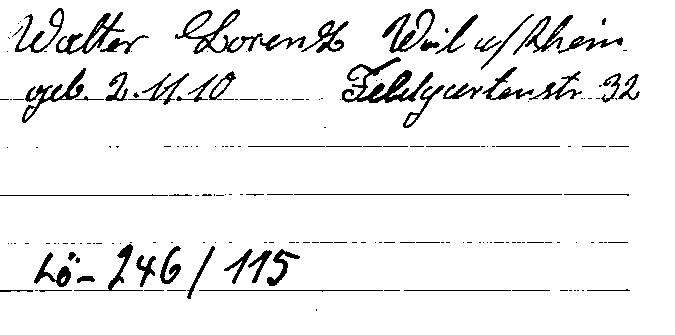 Walter Lorenz Weil a/Rhein
geb. 2.11.10 Feldgartenstr. 32
Lö-246/115